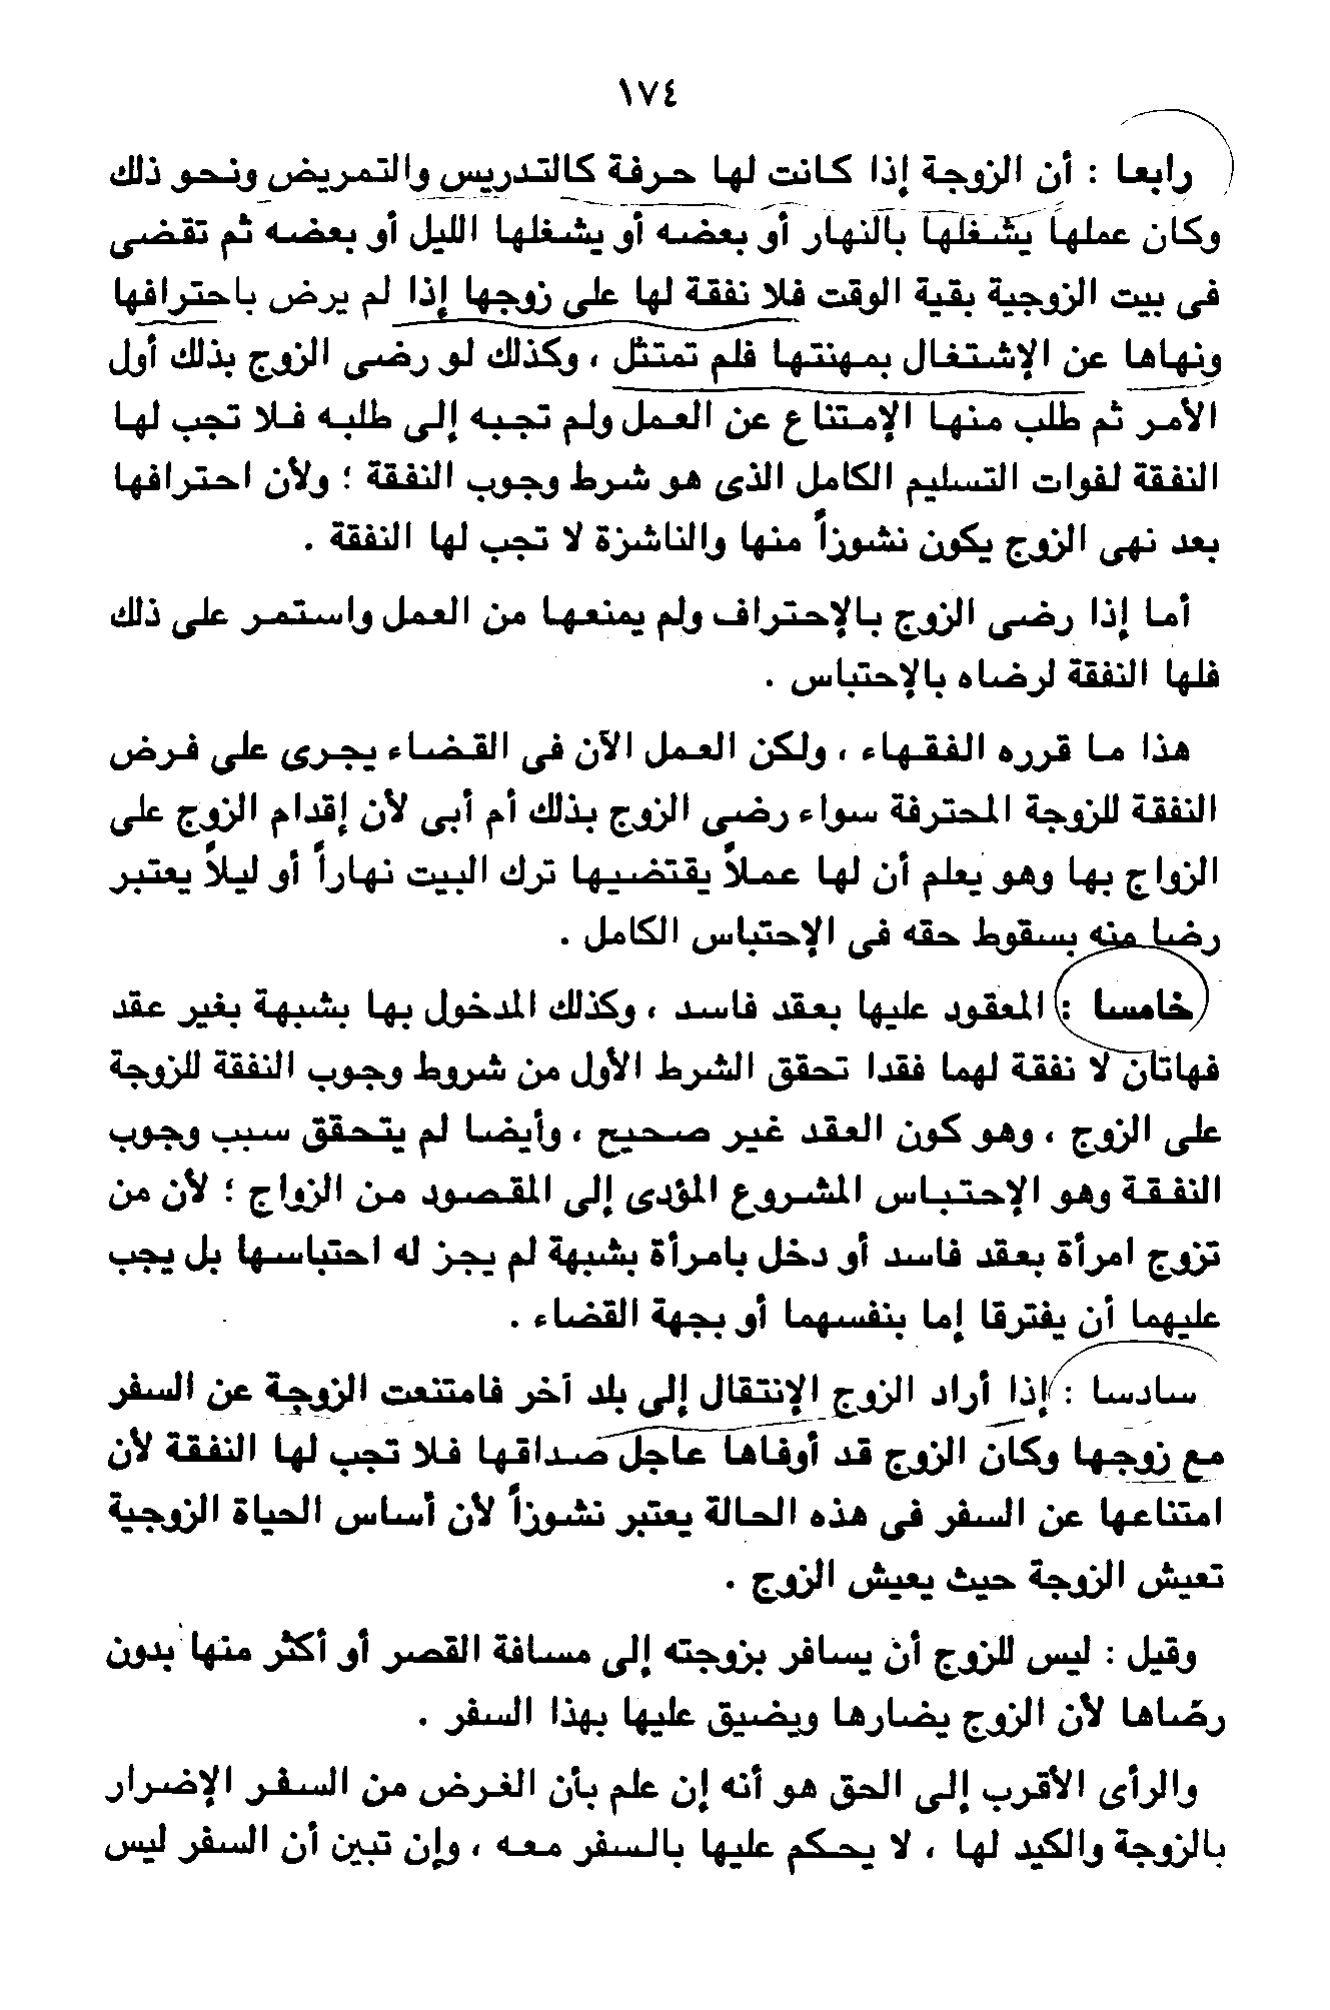 ١٧٤
رابعا : أن الزوجة إذا كانت لها حرفة كالتدريس والتمريض ونحو ذلك
وكان عملها يشغلها بالنهار أو بعضه أو يشغلها الليل أو بعضه ثم تقضى
فى بيت الزوجية بقية الوقت فلا نفقة لها على زوجها إذا لم يرض باحترافها
ونهاها عن الإشتغال بمهنتها فلم تمتثل ، وكذلك لو رضى الزوج بذلك أول
الأمر ثم طلب منها الإمتناع عن العمل ولم تجبه إلى طلبه فلا تجب لها
النفقة لفوات التسليم الكامل الذى هو شرط وجوب النفقة ؛ ولأن احترافها
بعد نهى الزوج يكون نشوزاً منها والناشزة لا تجب لها النفقة .
أما إذا رضى الزوج بالإحتراف ولم يمنعها من العمل واستمر على ذلك
فلها النفقة لرضاه بالإحتباس .
هذا ما قرره الفقهاء ، ولكن العمل الآن فى القضاء يجرى على فرض
النفقة للزوجة المحترفة سواء رضى الزوج بذلك أم أبى لأن إقدام الزوج على
الزواج بها وهو يعلم أن لها عملاً يقتضيها ترك البيت نهاراً أو ليلاً يعتبر
رضا منه بسقوط حقه فى الإحتباس الكامل .
خامسا : المعقود عليها بعقد فاسد ، وكذلك المدخول بها بشبهة بغير عقد
فهاتان لا نفقة لهما فقدا تحقق الشرط الأول من شروط وجوب النفقة للزوجة
على الزوج ، وهو كون العقد غير صحيح ، وأيضا لم يتحقق سبب وجوب
النفقة وهو الإحتباس المشروع المؤدى إلى المقصود من الزواج ؛ لأن من
تزوج امرأة بعقد فاسد أو دخل بامرأة بشبهة لم يجز له احتباسها بل يجب
عليهما أن يفترقا إما بنفسهما أو بجهة القضاء .
سادسا : إذا أراد الزوج الإنتقال إلى بلد آخر فامتنعت الزوجة عن السفر
مع زوجها وكان الزوج قد أوفاها عاجل صداقها فلا تجب لها النفقة لأن
امتناعها عن السفر فى هذه الحالة يعتبر نشوزاً لأن أساس الحياة الزوجية
تعيش الزوجة حيث يعيش الزوج .
وقيل : ليس للزوج أن يسافر بزوجته إلى مسافة القصر أو أكثر منها بدون
رضاها لأن الزوج يضارها ويضيق عليها بهذا السفر .
والرأى الأقرب إلى الحق هو أنه إن علم بأن الغرض من السفر الإضرار
بالزوجة والكيد لها ، لا يحكم عليها بالسفر معه ، وإن تبين أن السفر ليس